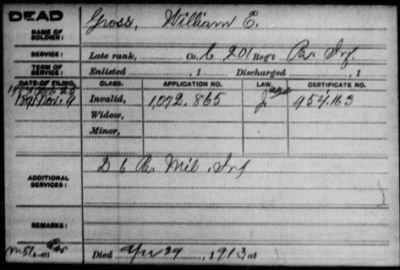 DEAD
NAME OF SOLDIER: Gross, William E.
SERVICE: Late rank, Co. C 201 Reg't Pa Inf
TERM OF SERVICE: Enlisted , 1 Discharged , 1
DATE OF FILING. CLASS. APPLICATION NO. LAW. CERTIFICATE NO.
1891 Nov. 9 Invalid, 1,072.865 954.163
Widow,
Minor,
ADDITIONAL SERVICES: D 6 Pa Mil. Inf
REMARKS:
Died 29, 1913, at